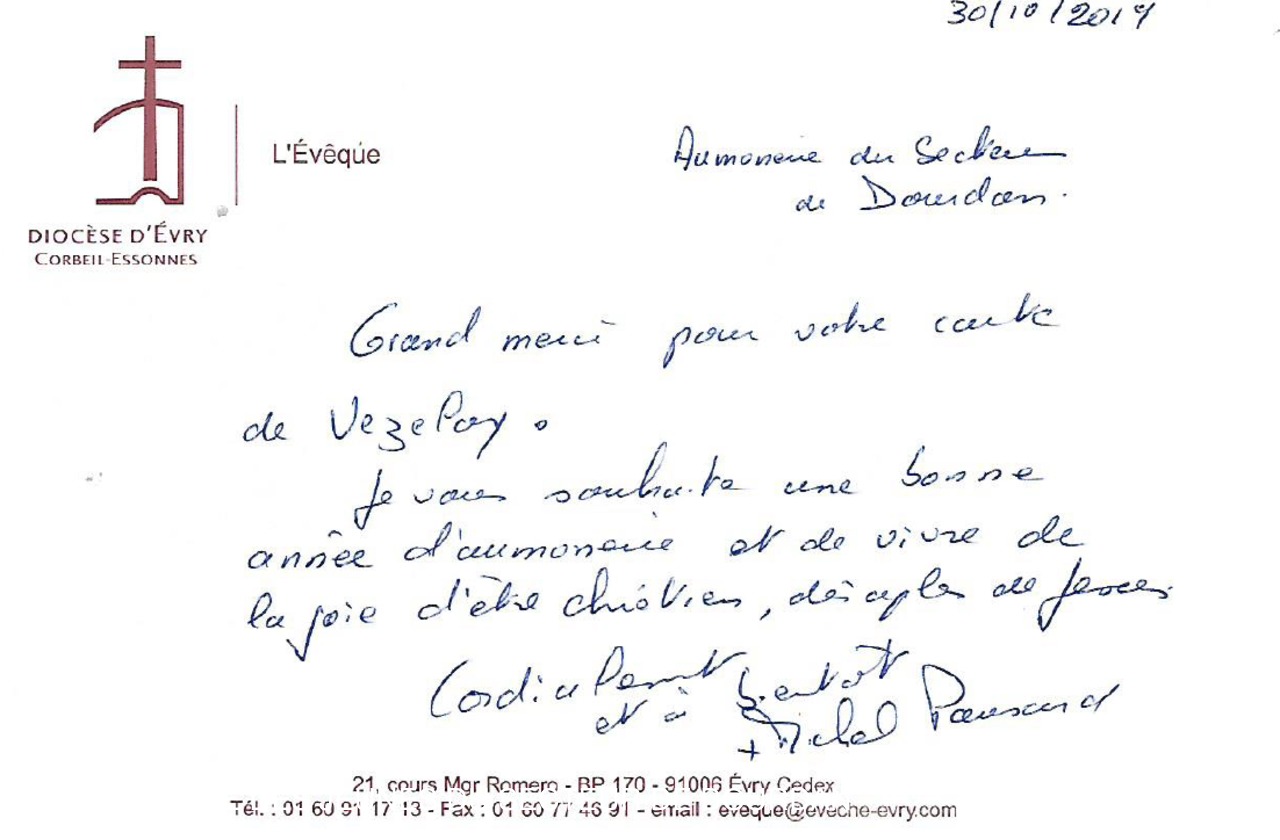 30/10/2019
L'Évêque
DIOCÈSE D'ÉVRY
CORBEIL-ESSONNES
Aumonerie du Secteur
de Dourdan.
Grand merci pour votre carte
de Vezelay.
Je vous souhaite une bonne
année d'aumonerie et de vivre de
la joie d'être chrétien, disciples de Jesus.
Cordialement
et à bientôt
+ Michel Pansard
21, cours Mgr Romero - BP 170 - 91006 Évry Cedex
Tél. : 01 60 91 17 13 - Fax : 01 60 77 46 91 - email : eveque@eveche-evry.com